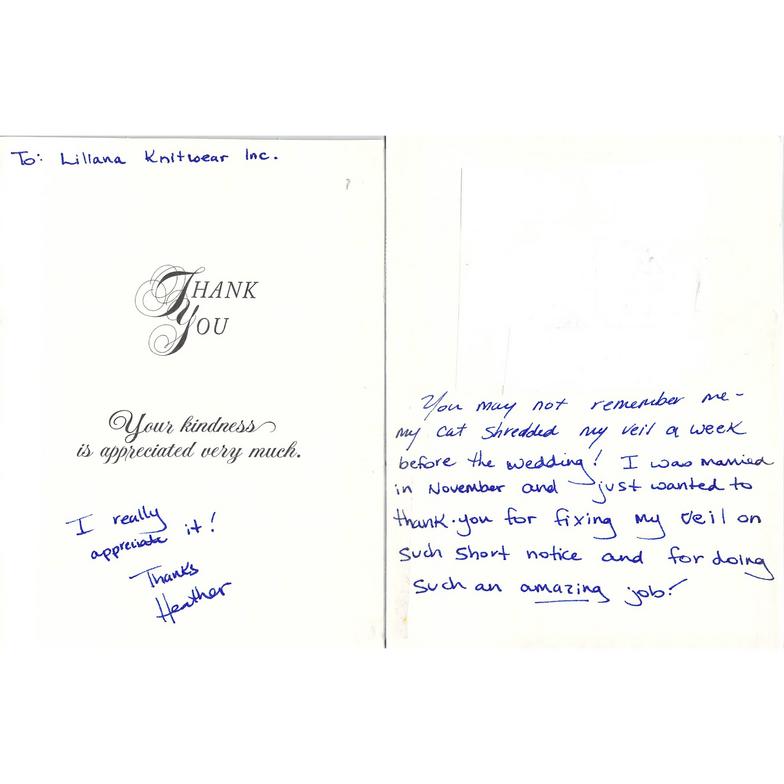 To: Liliana Knitwear Inc.
THANK
YOU
Your kindness
is appreciated very much.
I really
appreciate it!
Thanks
Heather
You may not remember me-
my cat shredded my veil a week
before the wedding! I was married
in November and just wanted to
thank-you for fixing my veil on
such short notice and for doing
such an amazing job!